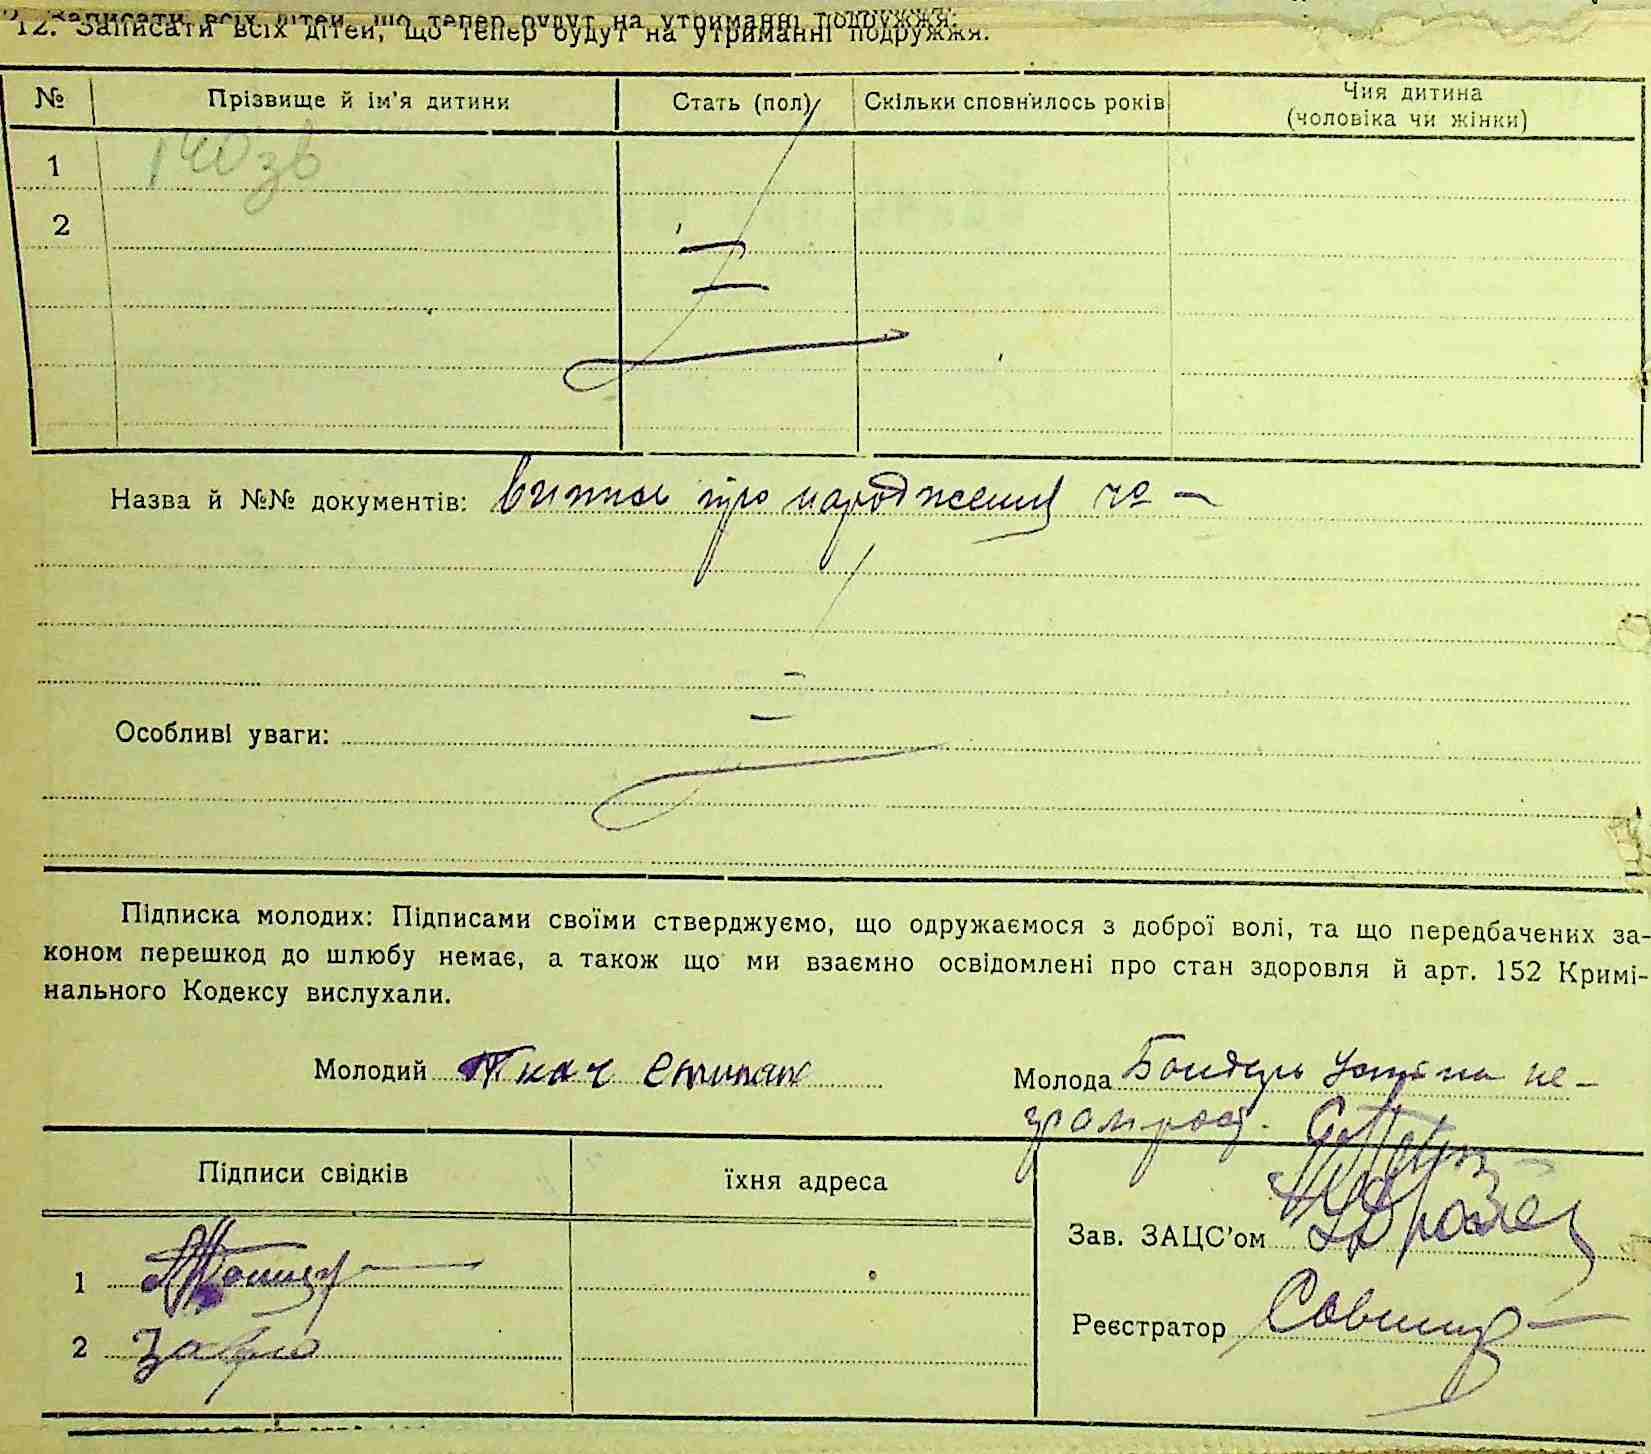 12. Записати всіх дітей, що тепер будуть на утриманні подружжя:
№ Прізвище й ім'я дитини Стать (пол) Скільки сповнилось років Чия дитина (чоловіка чи жінки)
1
2
Назва й №№ документів: про народження
Особливі уваги:
Підписка молодих: Підписами своїми стверджуємо, що одружаємося з доброї волі, та що передбачених за-
коном перешкод до шлюбу немає, а також що ми взаємно освідомлені про стан здоровля й арт. 152 Кримі-
нального Кодексу вислухали.
Молодий Ткач Степан Молода Бондар Устина не-
грамотна.
Підписи свідків їхня адреса
Зав. ЗАЦС'ом
1
Реєстратор
2